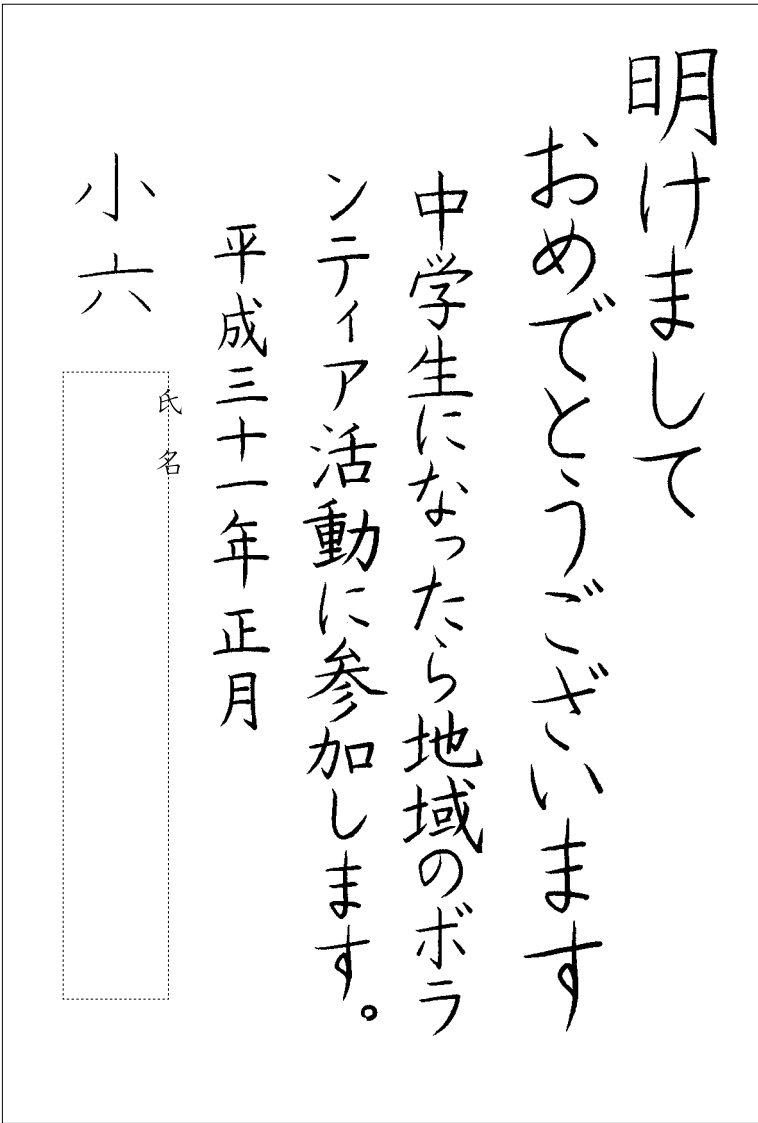 明けまして
おめでとうございます
中学生になったら地域のボラ
ンティア活動に参加します。
平成三十一年 正月
小六
氏名